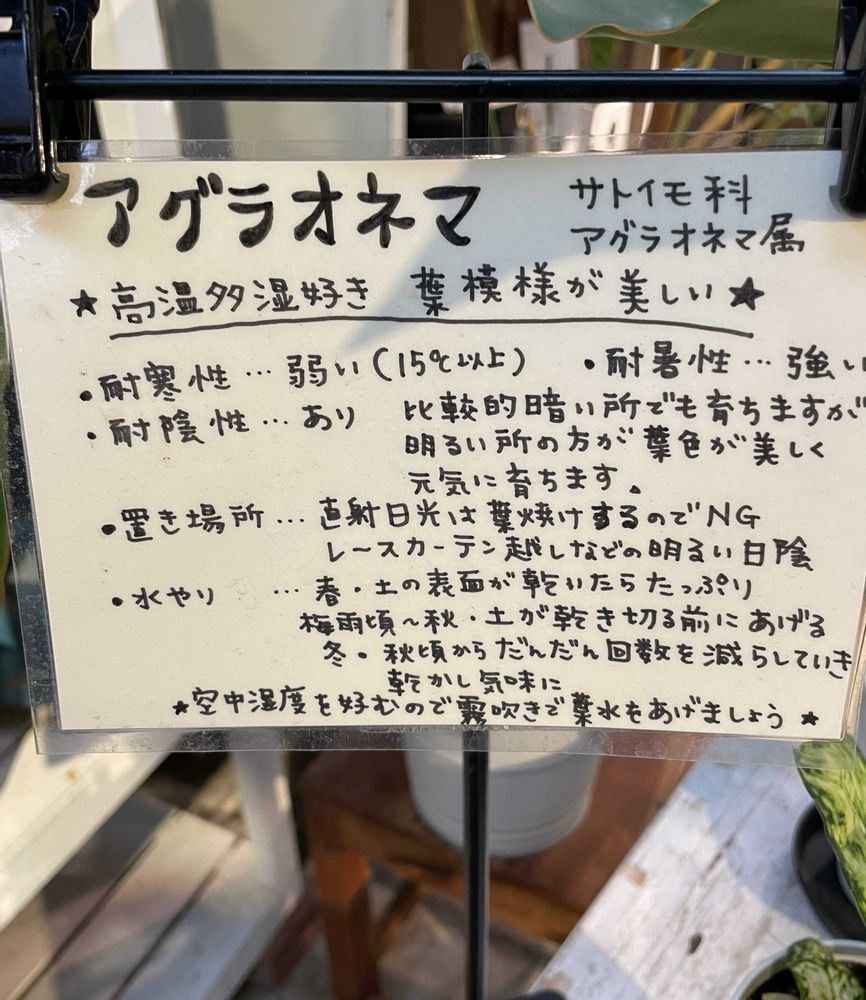 アグラオネマ
サトイモ科
アグラオネマ属
★高温多湿好き 葉模様が美しい★
・耐寒性…弱い(15℃以上) ・耐暑性…強い
・耐陰性…あり 比較的暗い所でも育ちますが
明るい所の方が葉色が美しく
元気に育ちます。
・置き場所…直射日光は葉焼けするのでNG
レースカーテン越しなどの明るい日陰
・水やり …春・土の表面が乾いたらたっぷり
梅雨頃〜秋・土が乾き切る前にあげる
冬・秋頃からだんだん回数を減らしていき
乾かし気味に
★空中湿度を好むので霧吹きで葉水をあげましょう★